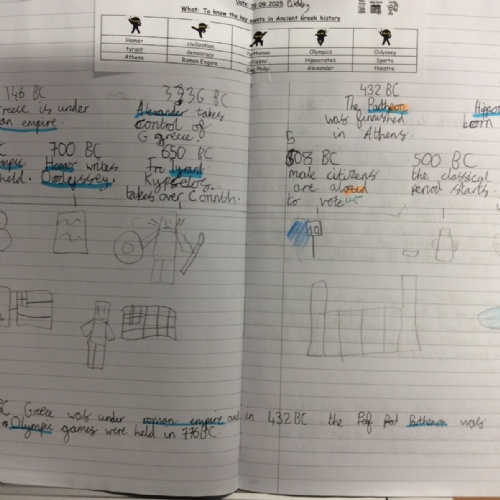 Date: 08.09.2025
What: To know the key events in Ancient Greek history
Homer civilization Parthenon Olympics Odyssey
tyrant democracy citizens Hippocrates Sparta
Athens Roman Empire King Philip Alexander theatre
146 BC 3336 BC 432 BC
Greece is under Alexander takes The Partheon Hipoc
an empire. control of was furnished born
G greece in Athens.
700 BC 650 BC 508 BC 500 BC
Homer writes Fro tyrant male citizens the classical
held. Oodessey. Kypselos are aloud period starts.
takes over Corinth. to vote
BC Greece was under roman empire and in 432 BC the Paf pat Buthenon was
Olympic games were held in 776BC.